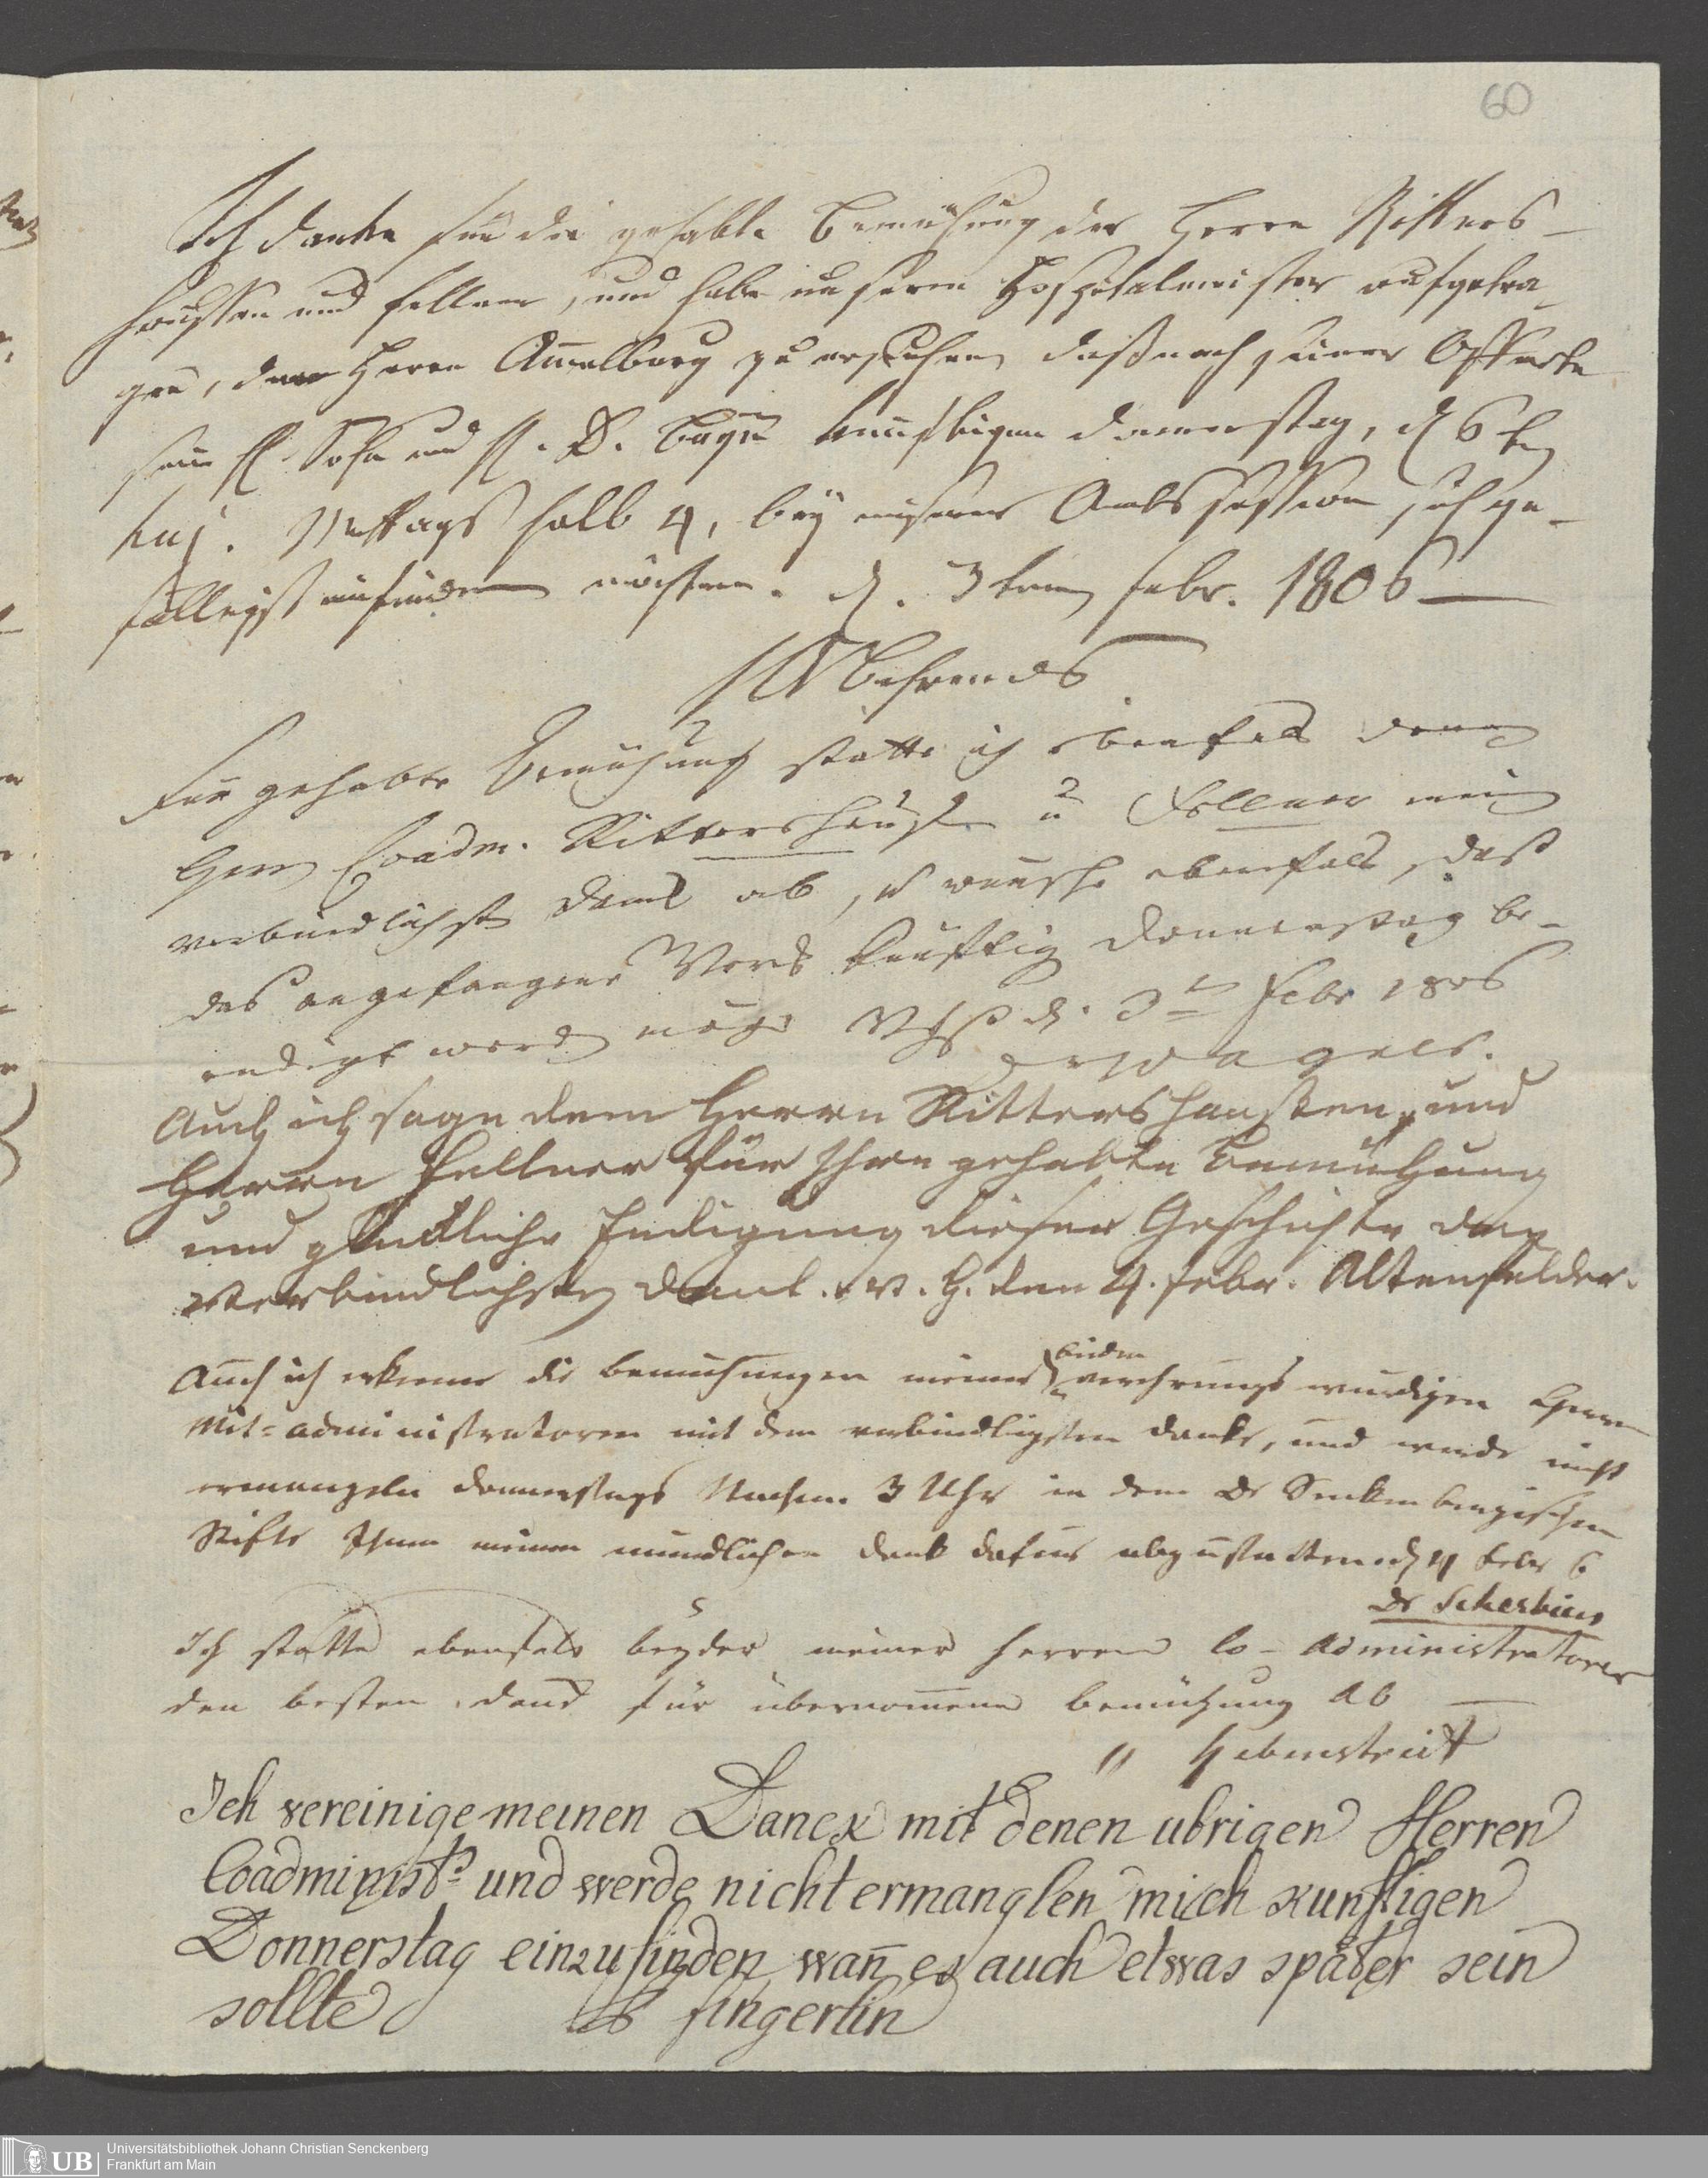 60
Ich danke für die gehabte Bemühung der Herrn Ritters-
haussen und Fellner, und habe unserm Hospitalmeister aufgetra-
gen, dem Herrn Amelburg zu ersuchen daß nach seiner Offerte
sein H. Sohn und H. D. künftigen Donnerstag, d 6ten
huj. Mittags halb 4, bey unserer Amtssession sich ge-
fälligst einfinden möchten. d. 3ten Febr. 1806
Behrends
Für gehabte Bemühung statte ich ebenfals denen
Herrn Coadm. Rittershausen u Fellner mein
verbindlichsten Danck ab, u wünsche ebenfals, daß
das angefangene Werck künftig Donnerstag be-
endigt werden möge d. 3ten Febr 1806
Auch ich sage dem Herrn Rittershaussen, und
Herrn Fellner für Ihre gehabte Bemühung
und glückliche Endigung dieser Geschichte den
verbindlichsten Danck. v. H. den 4. Febr. Altenfelder.
Auch ich erkenne die Bemühungen meiner beiden verehrungswürdigen Herrn
Mit-administratoren mit dem verbindligsten Danke, und werde nicht
ermangeln Donnerstags Nachm. 3 Uhr in dem Dr Senckenbergischen
Stifte Ihnen meinen mündlichen Dank dafür abzustatten d 4 Febr 6
Dr Scherbius
Ich statte ebenfals beyder meiner Herren Co-Administratoren
den besten Danck für übernomene Bemühung Ab
Hebenstreit
Ich vereinige meinen Danck mit denen ubrigen Herren
Coadminist. und werde nicht ermanglen mich kunftigen
Donnerstag einzufinden wan̄ es auch etwas später sein
sollte Fingerlin
UB
Universitätsbibliothek Johann Christian Senckenberg
Frankfurt am Main